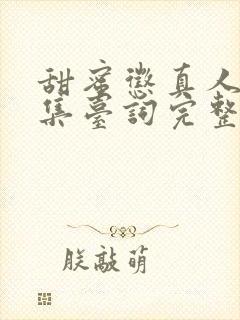 甜蜜懲真人
集臺詞完整
朕敲萌